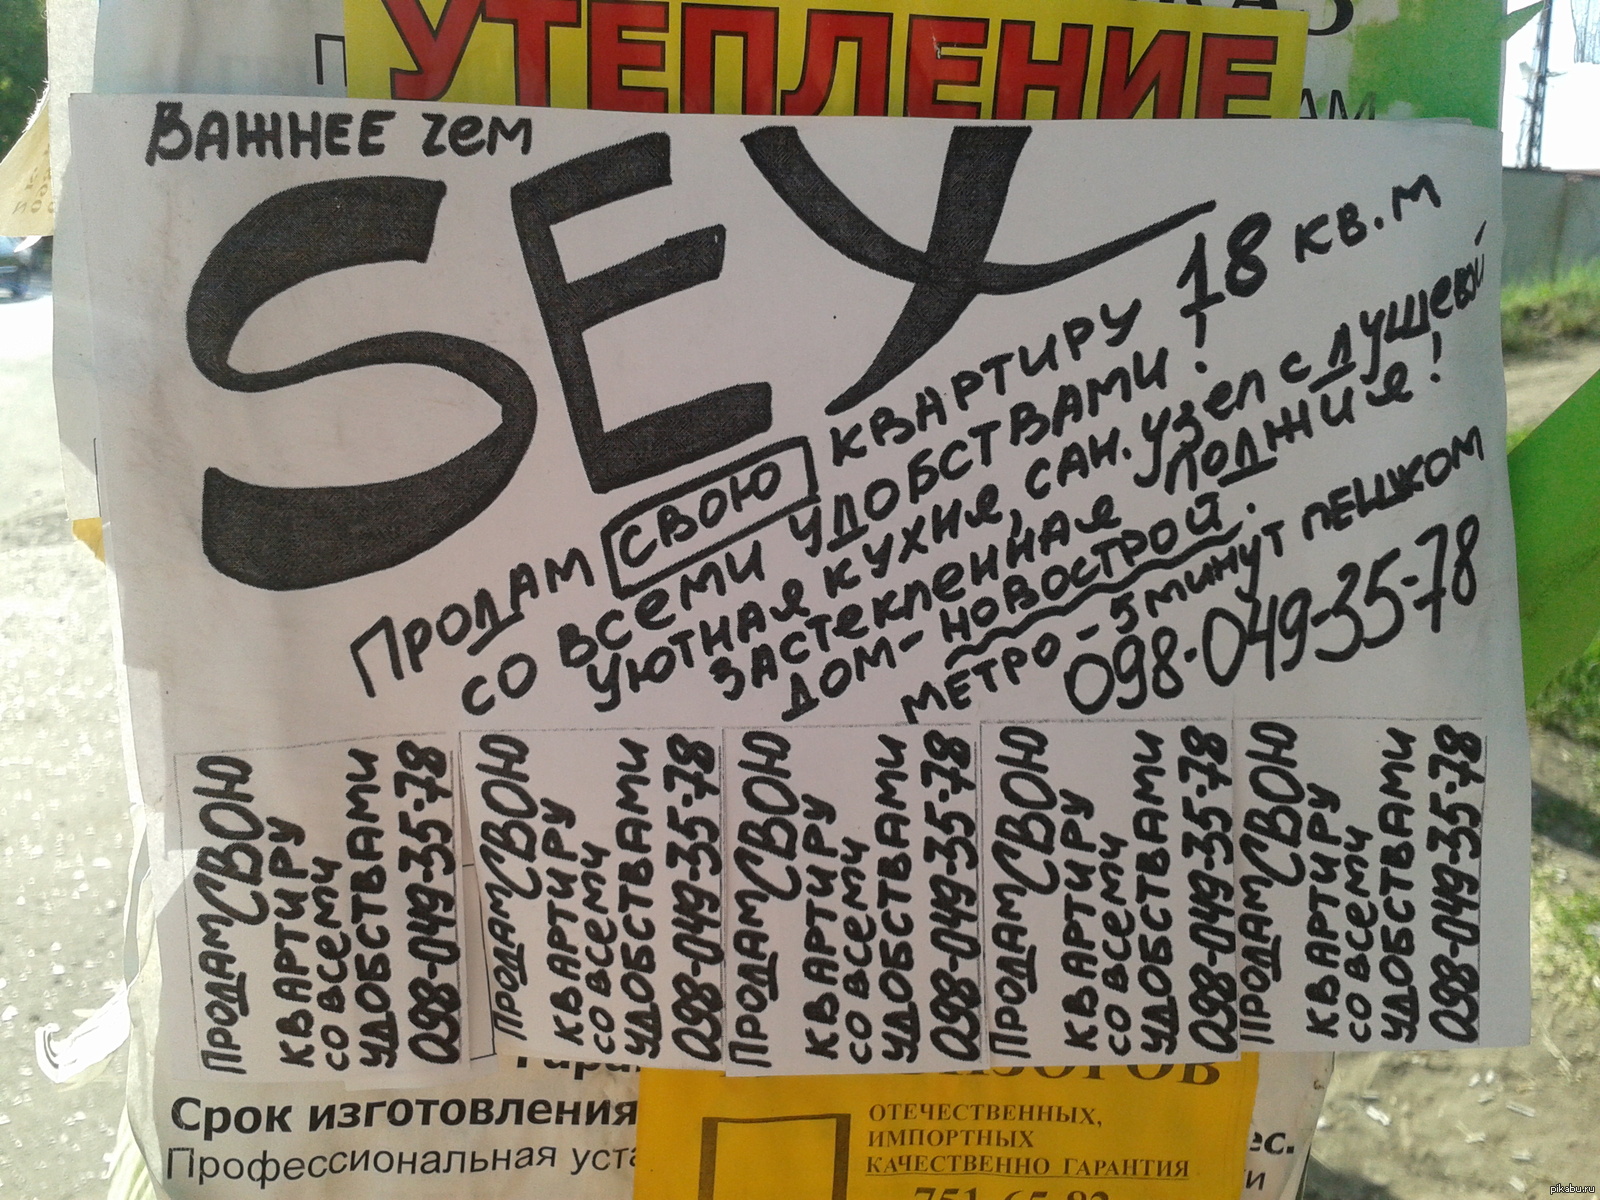 УТЕПЛЕНИЕ
ВАЖНЕЕ чем
SEX
ПРОДАМ СВОЮ КВАРТИРУ 18 КВ.М
СО ВСЕМИ УДОБСТВАМИ!
УЮТНАЯ КУХНЯ, САН.УЗЕЛ С ДУШЕВОЙ
ЗАСТЕКЛЕННАЯ ЛОДЖИЯ!
ДОМ-НОВОСТРОЙ.
МЕТРО-5 МИНУТ ПЕШКОМ
098-049-35-78
ПРОДАМ СВОЮ
КВАРТИРУ
СО ВСЕМИ
УДОБСТВАМИ
098-049-35-78
ПРОДАМ СВОЮ
КВАРТИРУ
СО ВСЕМИ
УДОБСТВАМИ
098-049-35-78
ПРОДАМ СВОЮ
КВАРТИРУ
СО ВСЕМИ
УДОБСТВАМИ
098-049-35-78
ПРОДАМ СВОЮ
КВАРТИРУ
СО ВСЕМИ
УДОБСТВАМИ
098-049-35-78
ПРОДАМ СВОЮ
КВАРТИРУ
СО ВСЕМИ
УДОБСТВАМИ
098-049-35-78
Срок изготовления
Профессиональная
ОТЕЧЕСТВЕННЫХ,
ИМПОРТНЫХ
КАЧЕСТВЕННО ГАРАНТИЯ
pikabu.ru